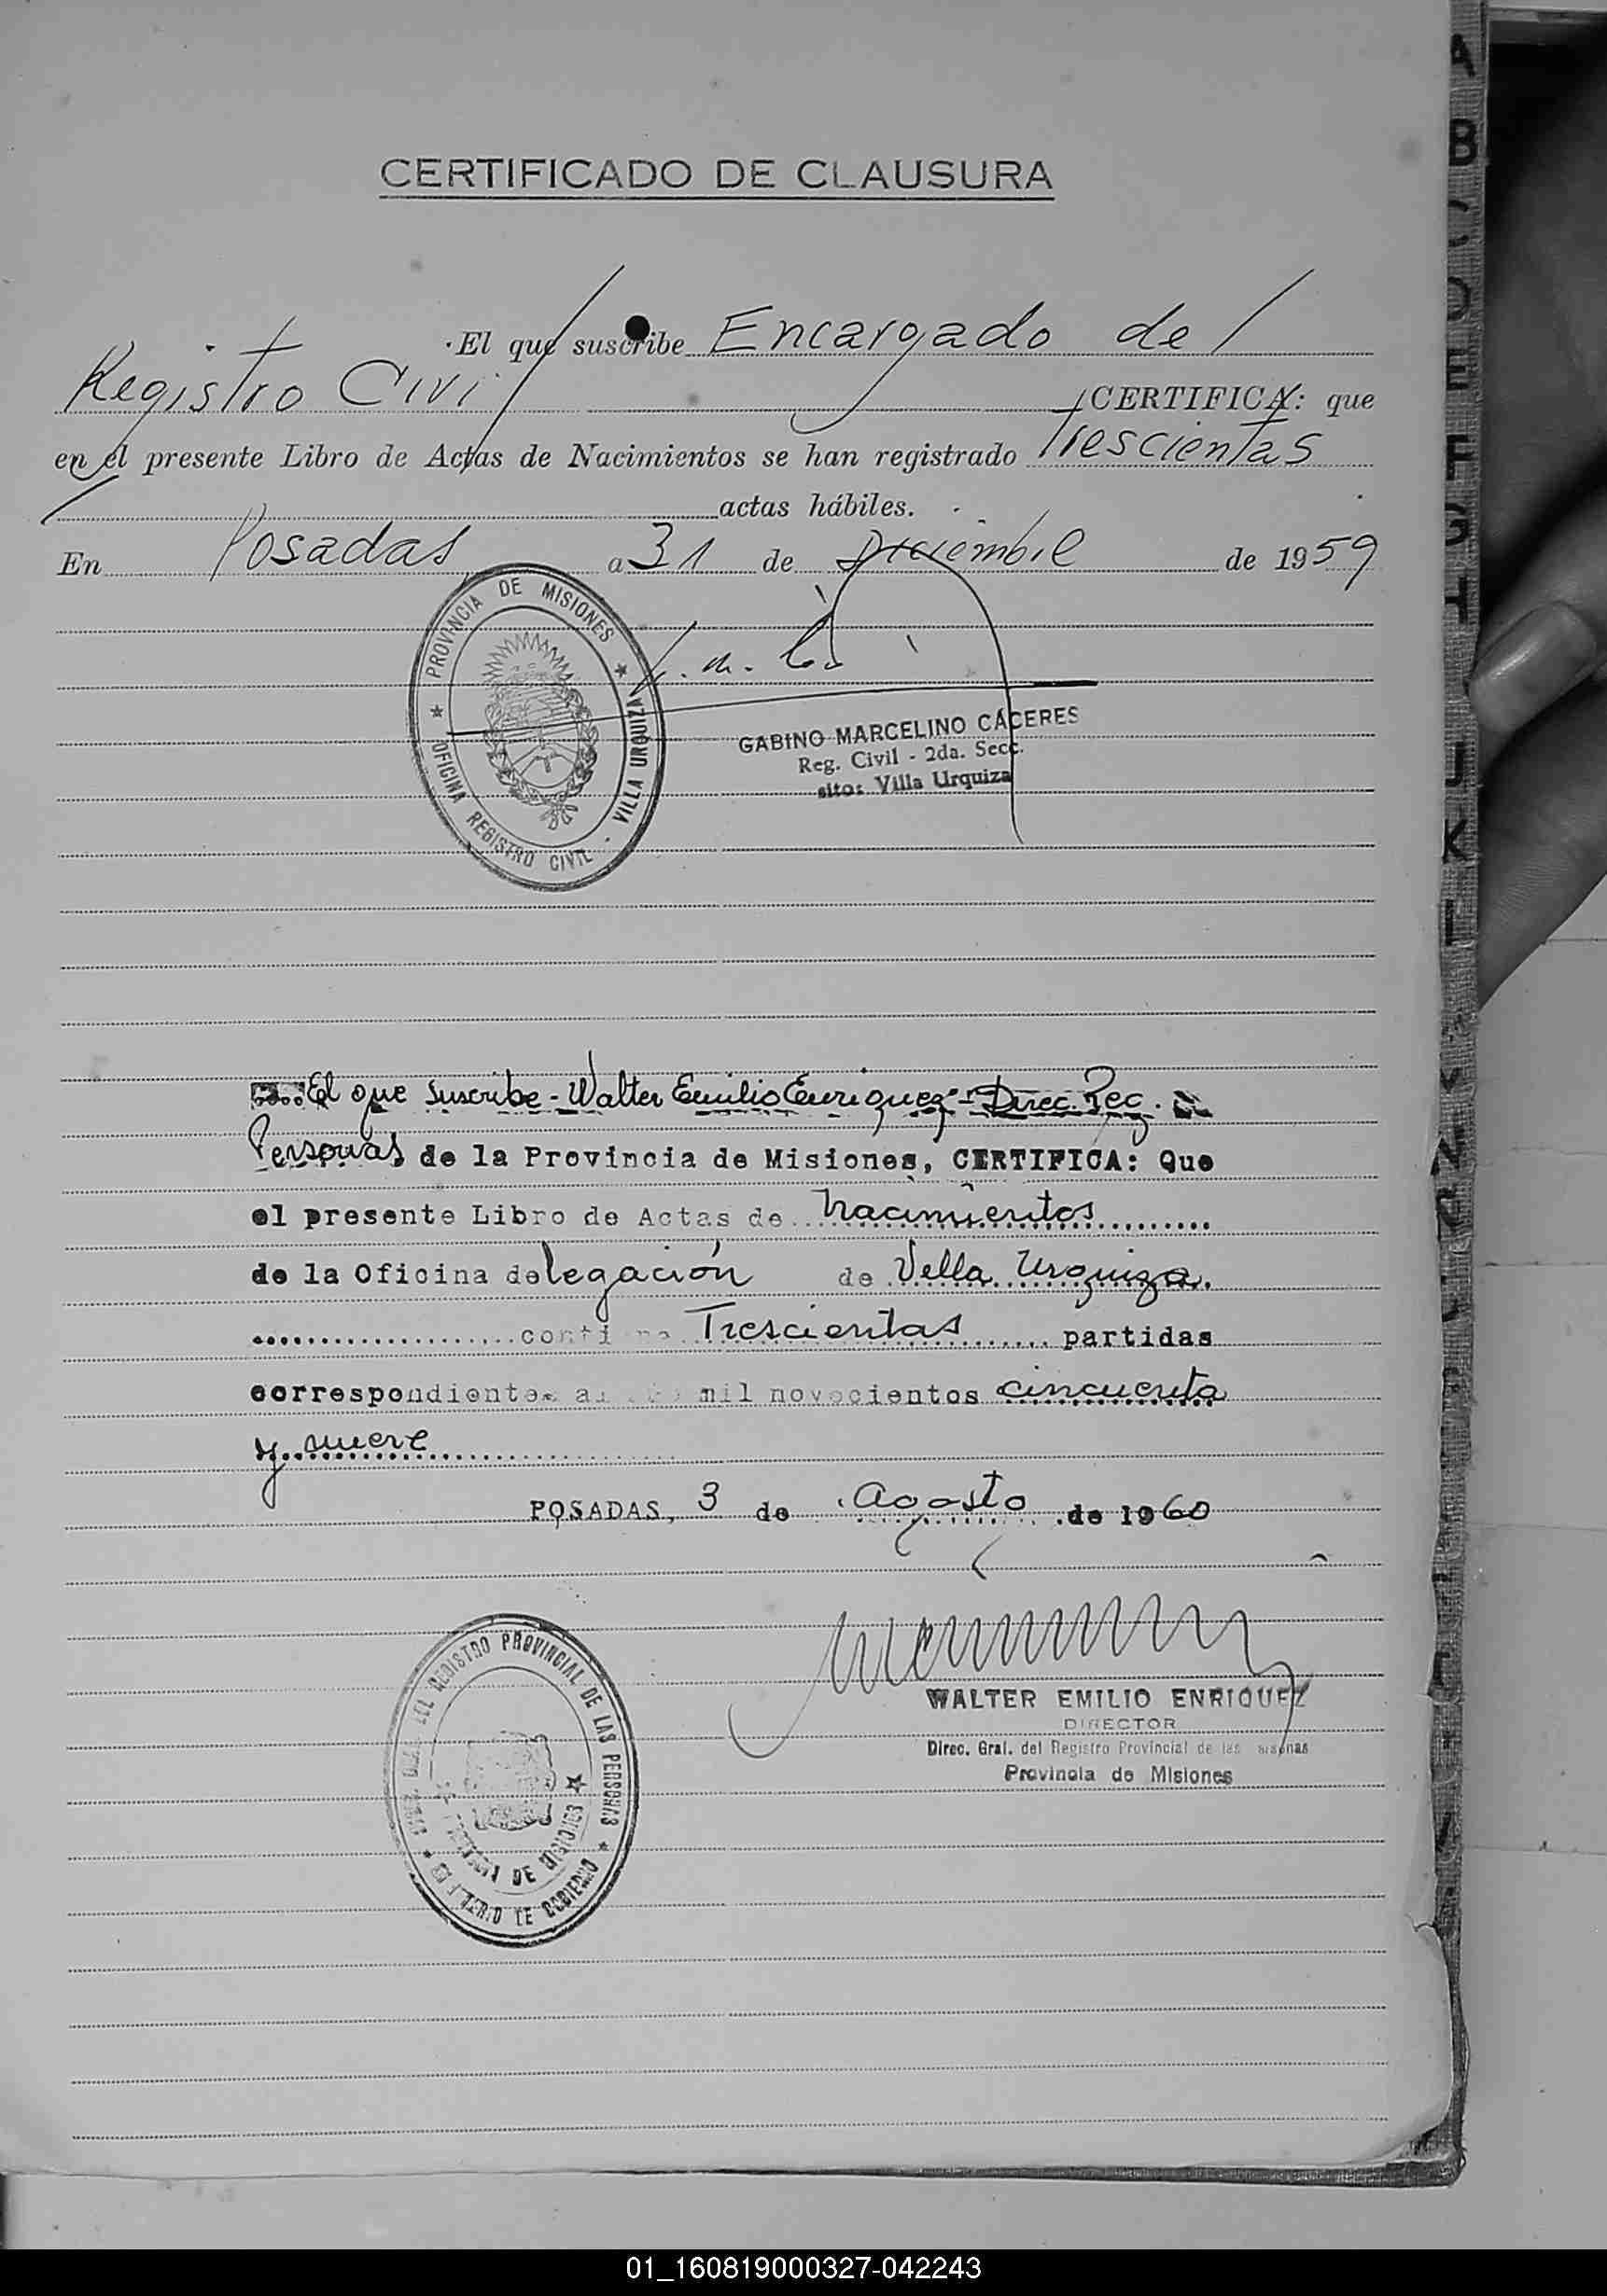 CERTIFICADO DE CLAUSURA
El que suscribe Encargado del
Registro Civil CERTIFICA: que
en el presente Libro de Actas de Nacimientos se han registrado Trescientas
actas hábiles.
En Posadas a 31 de Diciembre de 1959
PROVINCIA DE MISIONES
OFICINA REGISTRO CIVIL - VILLA URQUIZA
GABINO MARCELINO CÁCERES
Reg. Civil - 2da. Secc.
sito: Villa Urquiza
El que suscribe - Walter Emilio Enriquez - Direc. Reg.
Personas de la Provincia de Misiones, CERTIFICA: Que
el presente Libro de Actas de Nacimientos
de la Oficina delegación de Villa Urquiza.
Trescientas partidas
correspondientes mil novecientos cincuenta
y nueve
POSADAS, 3 de agosto de 1960
REGISTRO PROVINCIAL DE LAS PERSONAS
DE MISIONES
DE GOBIERNO
WALTER EMILIO ENRIQUEZ
DIRECTOR
Direc. Gral. del Registro Provincial de las
Provincia de Misiones
A
B
C
D
E
F
G
H
J
K
01_160819000327-042243